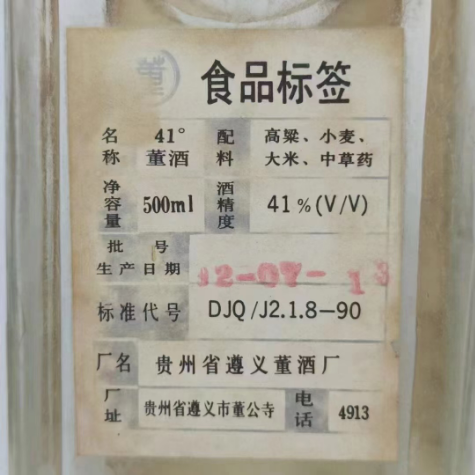 董
食品标签
名称 41° 董酒 配料 高粱、小麦、大米、中草药
净容量 500ml 酒精度 41%(V/V)
批号
生产日期 12-07-13
标准代号 DJQ/J2.1.8-90
厂名 贵州省遵义董酒厂
厂址 贵州省遵义市董公寺 电话 4913